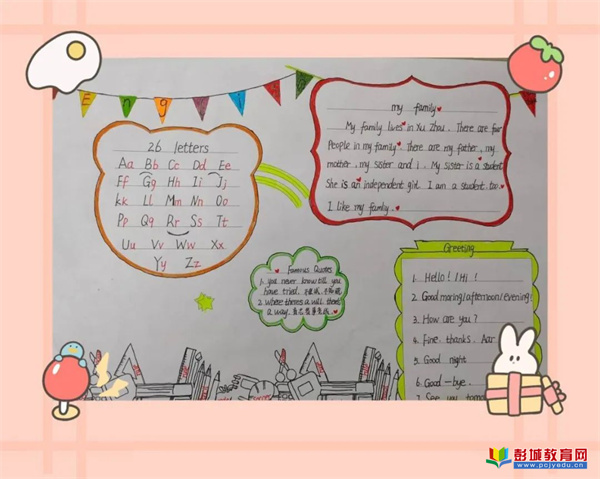 Englis
26 letters
Aa Bb Cc Dd Ee
Ff Gg Hh Ii Jj
kk Ll Mm Nn Oo
Pp Qq Rr Ss Tt
Uu Vv Ww Xx
Yy Zz
my family
My family lives in Xu Zhou. There are four
People in my family. There are my father, my
mother, my sister and i. My sister is a student.
She is an independent girl. I am a student. too.
I like my family.
Famous Quotes
1. you never know till you
have tried.
2. where there's a will, there's
a way.
Greeting
1. Hello! / Hi!
2. Good moring/afternoon/evening!
3. How are you?
4. Fine. thanks.
5. Good night
6. Good-bye.
7. See you
彭城教育网
www.pcjyedu.cn